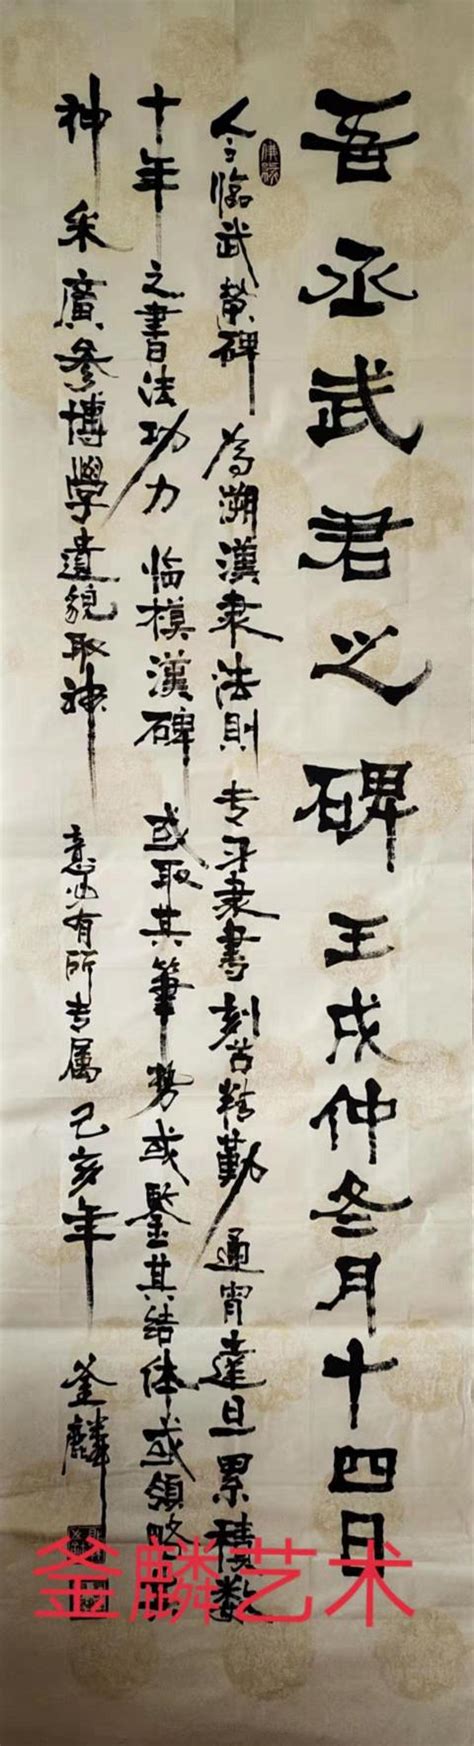 吾丞武君之碑王戌仲冬月十四日
今临武荣碑为溯漢隶法则专牙隶書刻苦精勤通宵達旦累積数
十年之書法功力临模漢碑或取其筆势或鑒其结体或领略其
神采廣参博學遺貌取神意必有所专属己亥年釜麟
釜麟艺术